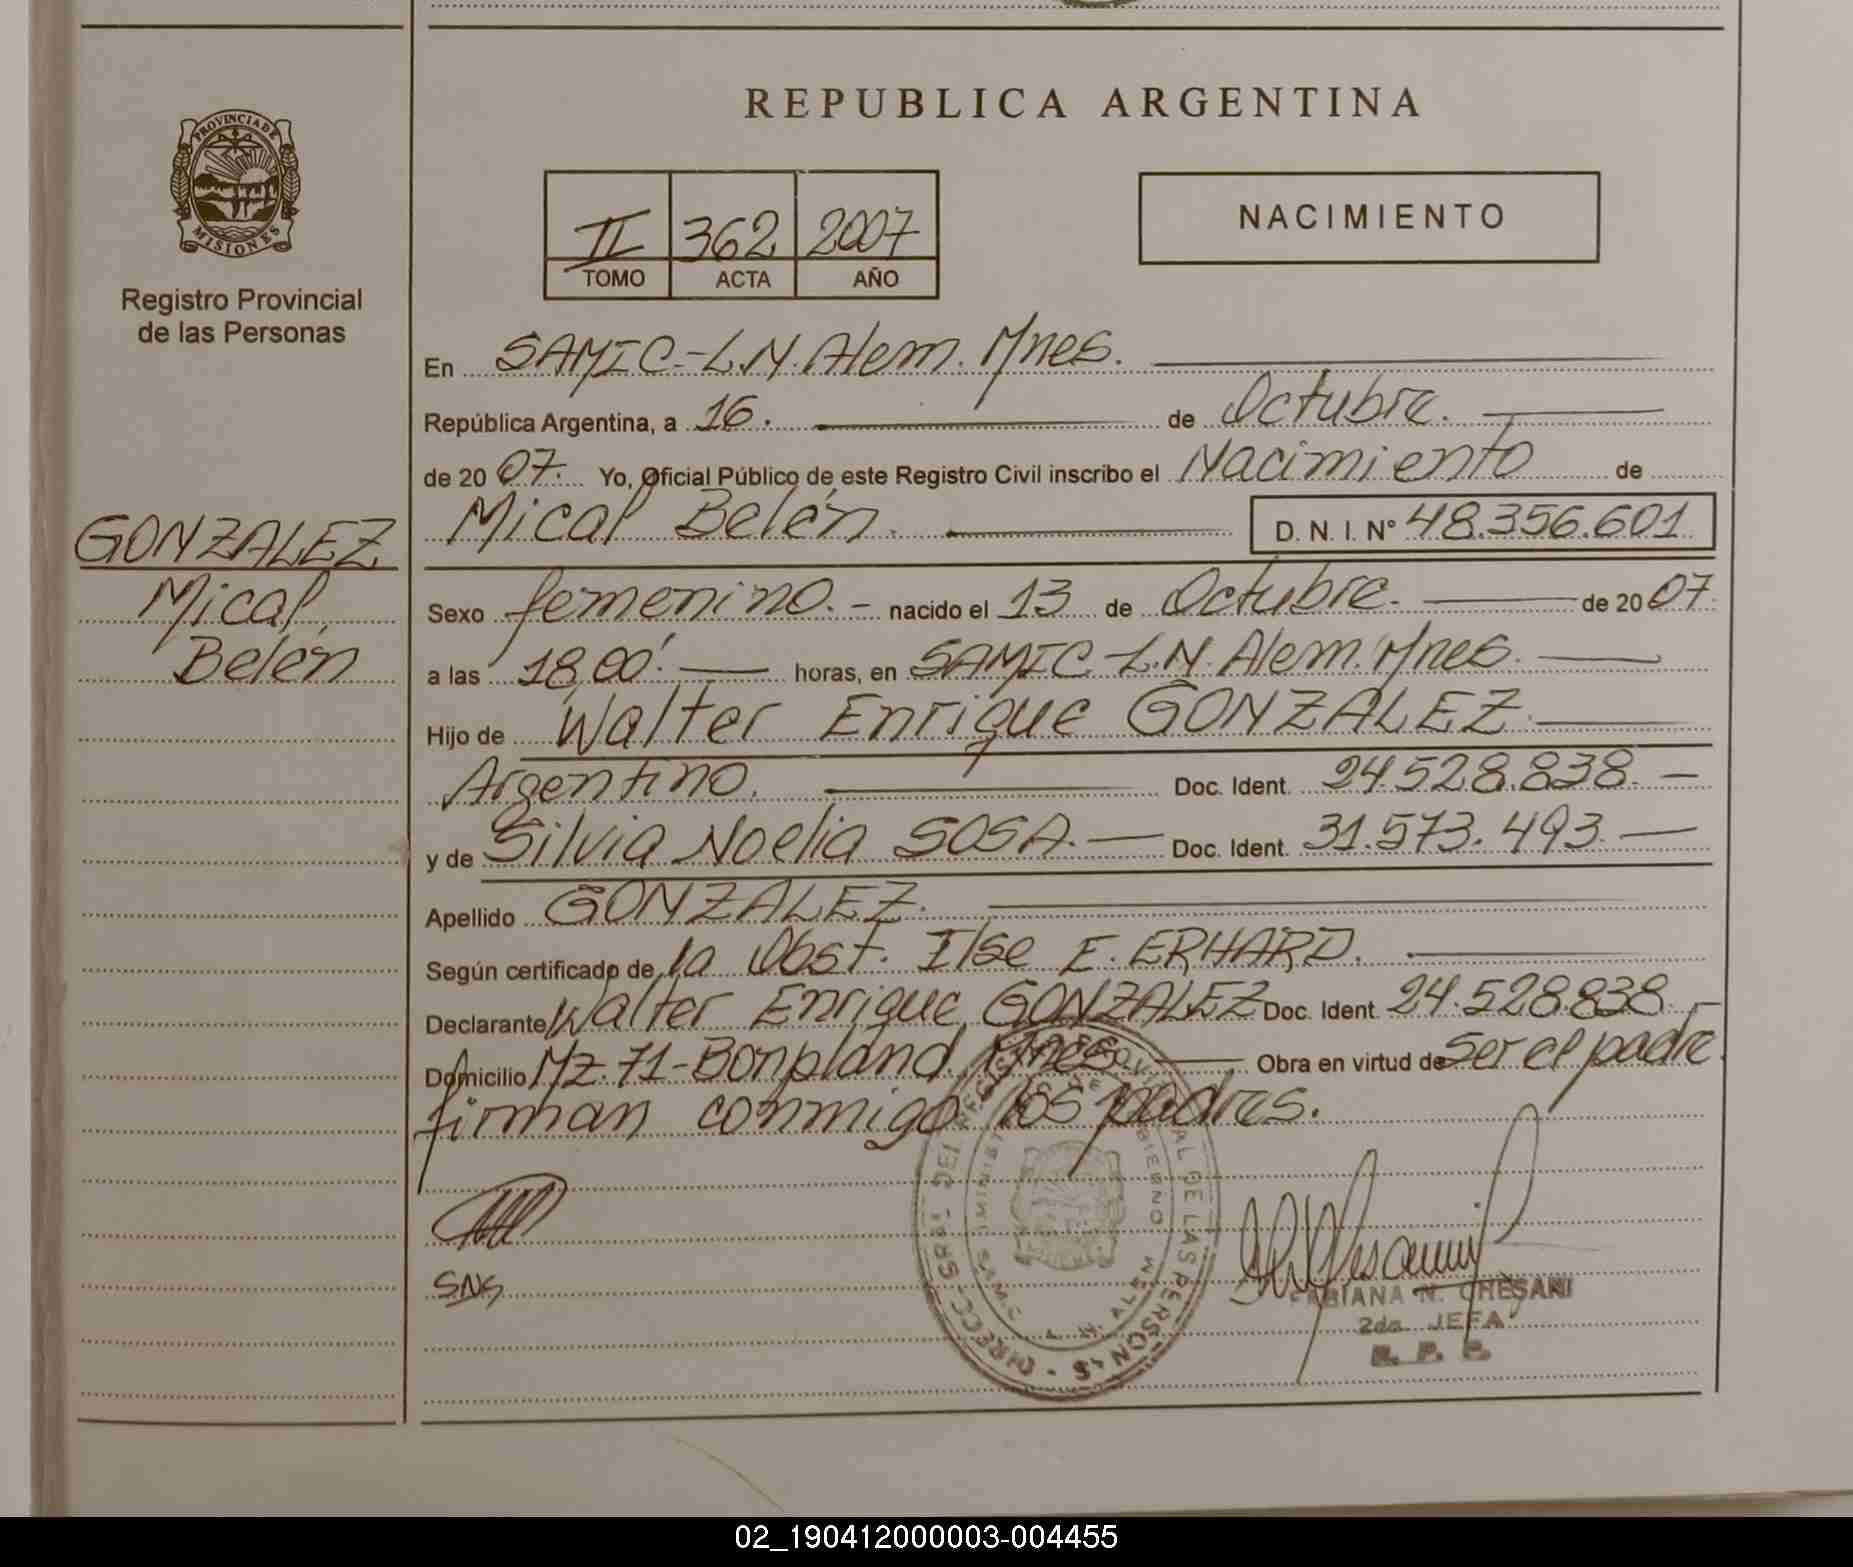 REPUBLICA ARGENTINA
PROVINCIA DE
MISIONES
Registro Provincial
de las Personas
II 362 2007
TOMO ACTA AÑO
NACIMIENTO
En SAMIC-L.N.Alem. Mnes.
República Argentina, a 16. de Octubre.
de 2007. Yo, Oficial Público de este Registro Civil inscribo el Nacimiento de
Mical Belén. D. N. I. N° 48.356.601
GONZALEZ
Mical
Belén
Sexo femenino.- nacido el 13 de Octubre. de 2007.
a las 18,00'. horas, en SAMIC-L.N.Alem.Mnes.
Hijo de Walter Enrique GONZALEZ.
Argentino. Doc. Ident. 24.528.838.-
y de Silvia Noelia SOSA.- Doc. Ident. 31.573.493.-
Apellido GONZALEZ.
Según certificado de la Obst. Ilse E. ERHARD.
Declarante Walter Enrique GONZALEZ Doc. Ident. 24.528.838.-
Domicilio Mz.71-Bonpland. Mnes. Obra en virtud de Ser el padre.
firman conmigo los padres.
SNS
FABIANA N. CHESANI
2da. JEFA
R. P. P.
02_190412000003-004455